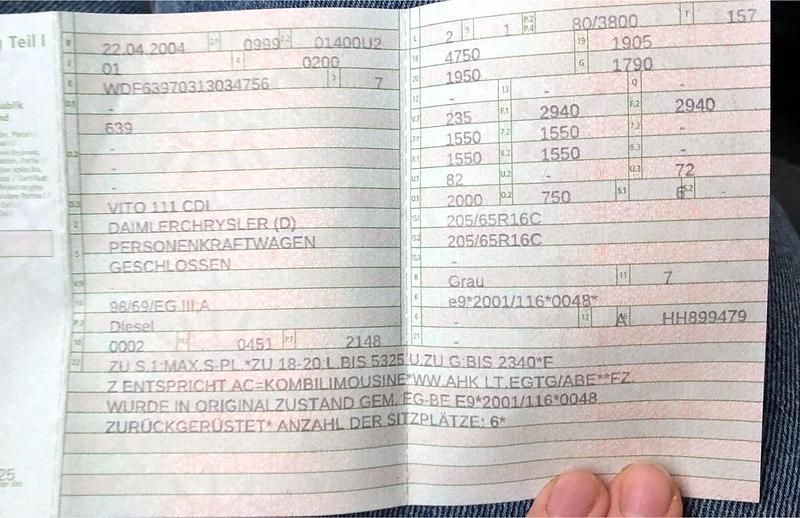 Teil I
B 22.04.2004 2.1 0999 2.2 01400U2
J 01 4 0200
E WDF63970313034756 3 7
D.1 -
639
-
D.2 -
-
D.3 VITO 111 CDI
2 DAIMLERCHRYSLER (D)
5 PERSONENKRAFTWAGEN
GESCHLOSSEN
V.9 -
14 98/69/EG III;A
P.3 Diesel
10 0002 14.1 0451 P.1 2148
L 2 9 1 P.2 P.4 80/3800 T 157
18 4750 19 1905
20 1950 G 1790
12 - 13 - Q -
V.7 235 F.1 2940 F.2 2940
7.1 1550 7.2 1550 7.3 -
8.1 1550 8.2 1550 8.3 -
U.1 82 U.2 - U.3 72
O.1 2000 O.2 750 S.1 6 S.2 -
15.1 205/65R16C
15.2 205/65R16C
15.3 -
R Grau 11 7
K e9*2001/116*0048*
6 - 17 A 16 HH899479
21 -
22 ZU S.1:MAX.S-PL.*ZU 18-20:L.BIS 5325 U.ZU G:BIS 2340*F
Z ENTSPRICHT AC=KOMBILIMOUSINE*WW.AHK LT.EGTG/ABE**FZ.
WURDE IN ORIGINALZUSTAND GEM. EG-BE E9*2001/116*0048
ZURÜCKGERÜSTET* ANZAHL DER SITZPLÄTZE: 6*